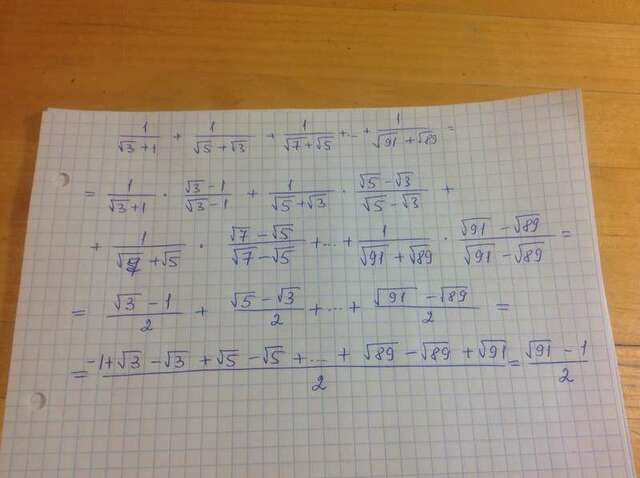 1/(√3+1) + 1/(√5+√3) + 1/(√7+√5) +...+ 1/(√91+√89) =
= 1/(√3+1) · (√3-1)/(√3-1) + 1/(√5+√3) · (√5-√3)/(√5-√3) +
+ 1/(√7+√5) · (√7-√5)/(√7-√5) +...+ 1/(√91+√89) · (√91-√89)/(√91-√89) =
= (√3-1)/2 + (√5-√3)/2 +...+ (√91-√89)/2 =
= (-1+√3-√3+√5-√5+...+√89-√89+√91)/2 = (√91-1)/2